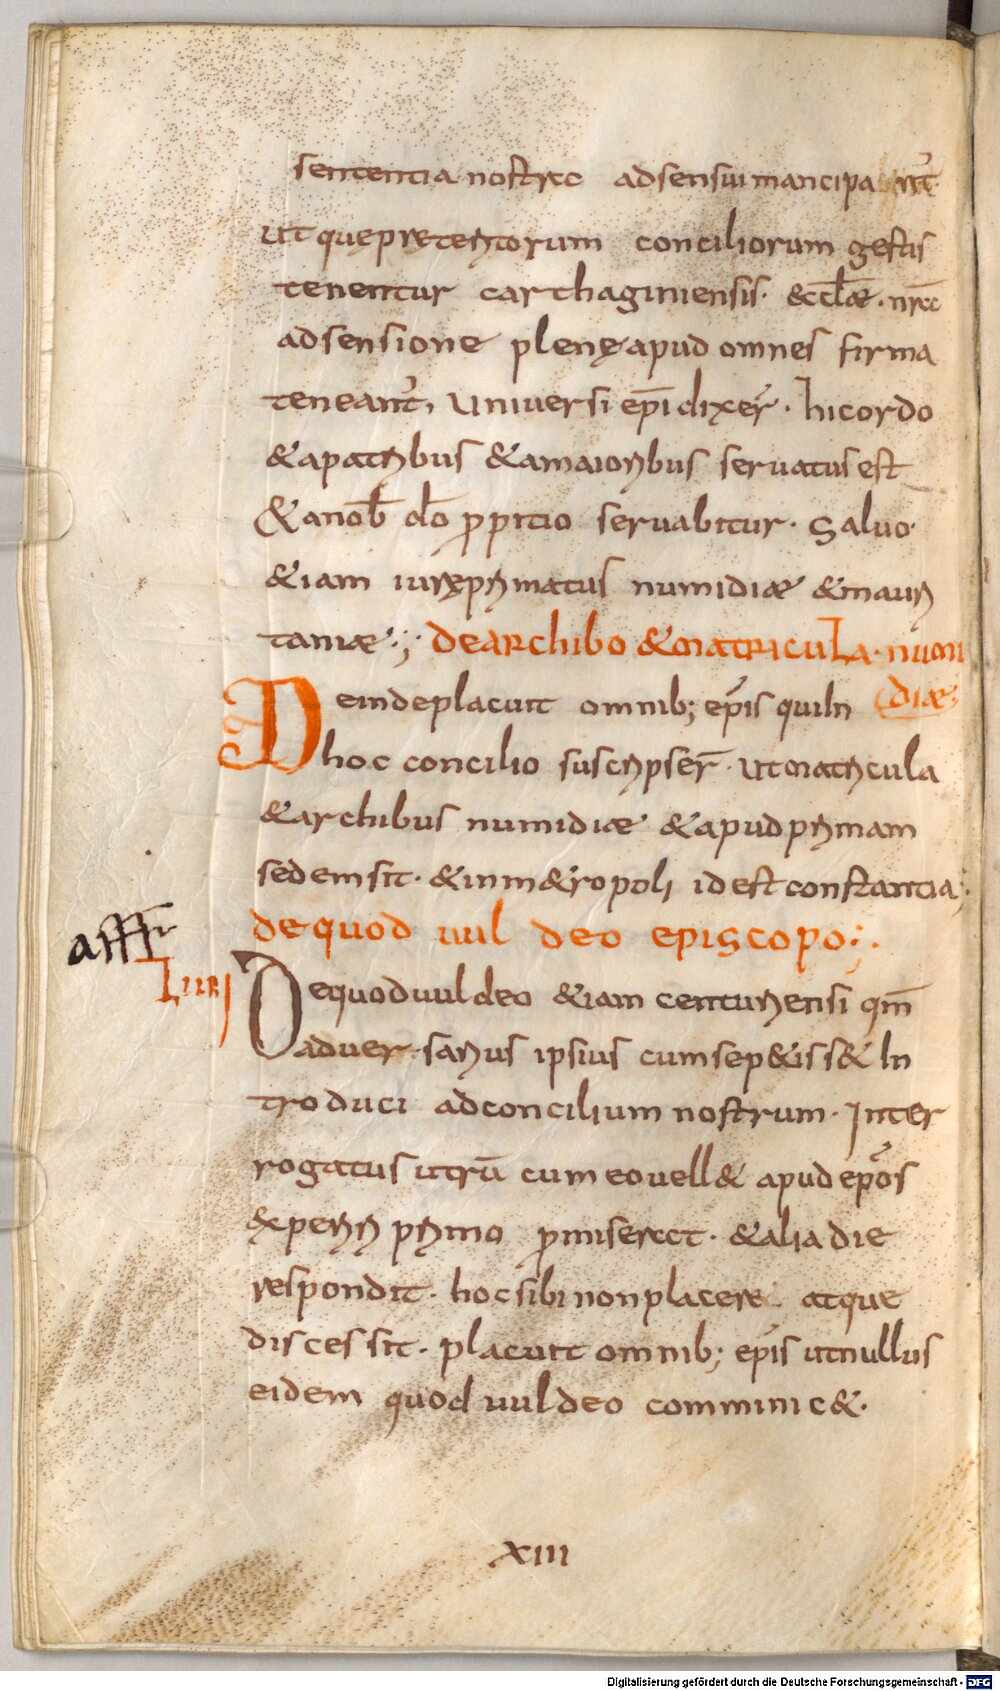 sententia nostrae adsensui mancipa nt̄.
ut que pręteritorum conciliorum gestis
tenentur carthaginensis. & eccl̄ae. nr̄ae
adsensione plenę apud omnes firma
teneant̄, Universi ep̄i dixer̄. hic ordo
& a patribus & a maioribus servatus est
& a nob̄ dō ꝓpitio servabitur. Salvo
&iam iurę primatus numidiae & mauri
taniae.; DE ARCHIBO & MATRICULA. NUMI
diae;
Deinde placuit omnib; ep̄is qui In
hoc concilio suscripser̄. ut matricula
& archibus numidiae & apud primam
sedem sit. & in m&ropoli id est constantia;
de quod uul deo episcopo;.
afffr
LIIII
De quod uul deo &iam centuriensi qm̄
adver sarius ipsius cum sep&iss& In
troduci ad concilium nostrum. Inter
rogatus utrū cum eo vell& apud ep̄os
experiri primo ꝓmiserat. & alia die
respondit. hoc sibi non placere atque
discessit. placuit omnib; ep̄is ut nullus
eidem quod uul deo comminic&.
XIII
Digitalisierung gefördert durch die Deutsche Forschungsgemeinschaft - DFG